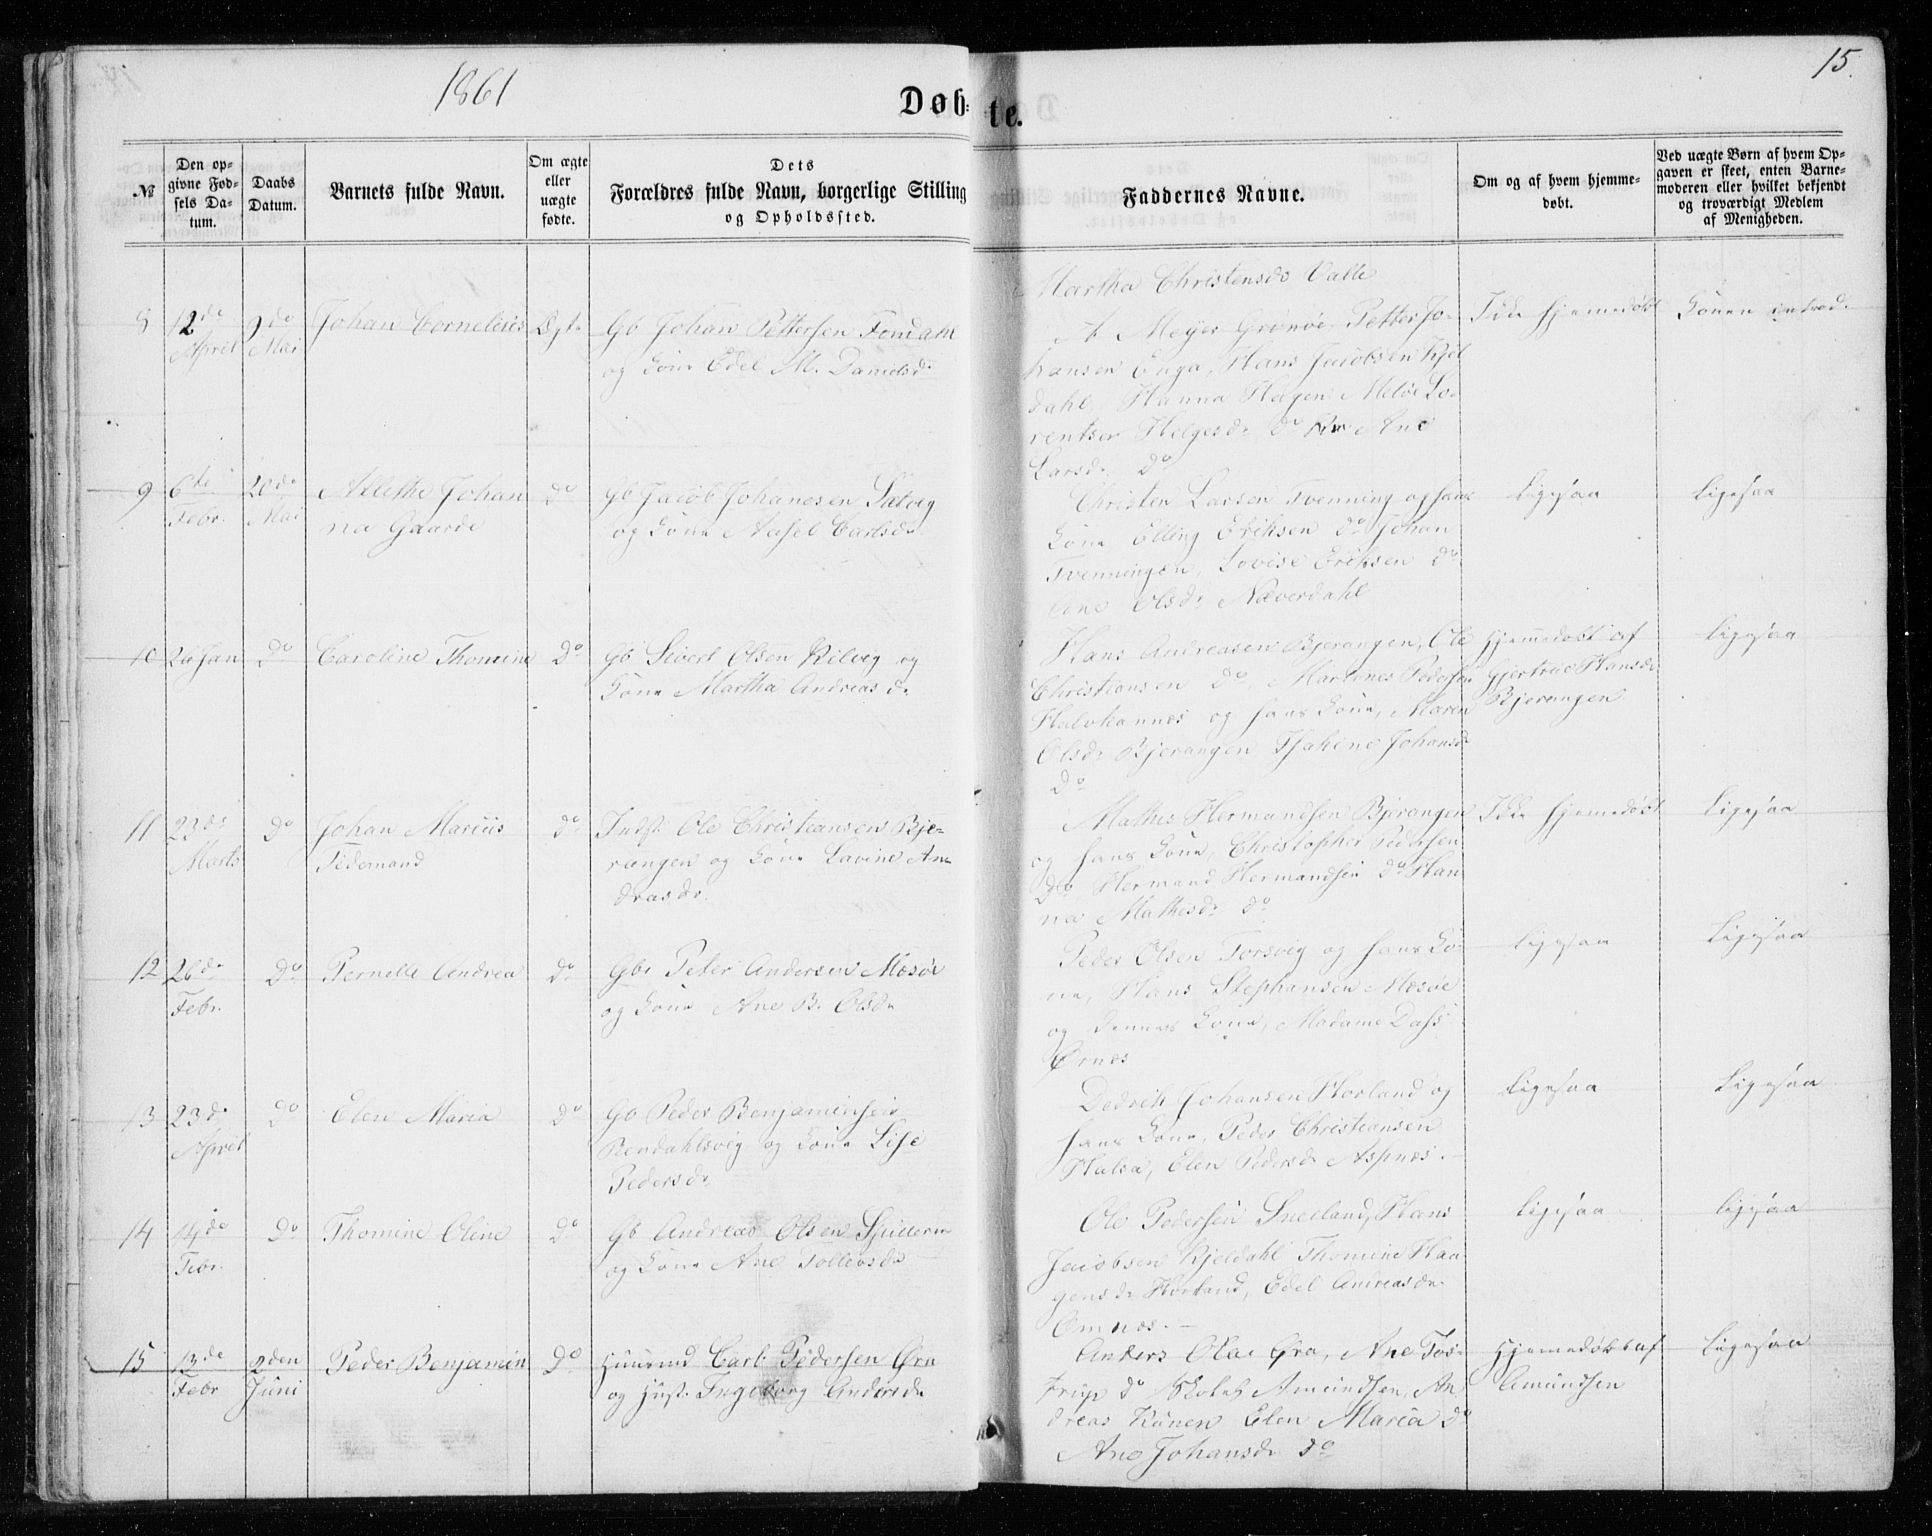 1861
15.
Døbte.
№
Den opgivne Fødsels Datum.
Daabs Datum.
Barnets fulde Navn.
Om ægte eller uægte fødte.
Dets Forældres fulde Navn, borgerlige Stilling og Opholdssted.
Faddernes Navne.
Om og af hvem hjemmedøbt.
Ved uægte Børn af hvem Opgaven er skeet, enten Barnemoderen eller hvilket bekjendt og troværdigt Medlem af Menigheden.
Martha Christensdr Valle
8 12de April 9de Mai Johan Cornelius Ægte
Gb Johan Pettersen Fondahl
og Kone Edel M. Danielsdr
Meyer Grönöe, Petter Jo-
hansen Enga, Hans Jacobsen Kjel
dahl, Hanna Hagen Melöe Lo-
rentse Helgesdr do Ane
Larsdr do
Ikke hjemmedøbt
Konen introd.
9 6te Febr. 20de Mai Alethe Johan
na Gaarde do
Gb Jacob Johanesen Sætvig
og Kone Casel Carlsdr
Christen Larsen Tvenning og hans
Kone Elling Eriksen do Johan
Tvenningen, Lovise Eriksen do
Ane Olsdr Næverdahl
Ligesaa
Ligesaa
10 26 Jan do Caroline Thomine do
Gb Sivert Olsen Kilvig og
Kone Martha Andreasdr
Hans Andreasen Bjerangen, Ole
Christiansen do, Martines Pedersen
Halvhannes og hans Kone, Maren
Olsdr Bjerangen Johansdr
do
Hjemmedøbt af
Gjertrue Hansdr
Bjerangen
Ligesaa
11 23de Marts do Johan Marius
Tidemand do
Indst. Ole Christiansen Bje-
rangen og Kone Lavine An
dreasdr.
Mathis Hermandsen Bjerangen
og hans Kone, Christopher Pedersen
do Hermand Hermandsen do Han
na Mathisdr do
Ikke hjemmedøbt
Ligesaa
12 26de Febr. do Pernelle Andrea do
Gbr Peter Andersen Mesöe
og Kone Ane B. Olsdr
Peder Olsen Forsvig og hans Ko-
ne, Hans Stephansen Mesöe
og dennes Kone, Madame Dass
Ørnes
Ligesaa
Ligesaa
13 23de April do Elen Maria do
Gb Peder Benjaminsen
Rendahlsvig og Kone Lise
Pedersdr
Dedrik Johansen Horland og
hans Kone, Peder Christiansen
Halsa, Elen Pedersdr Aspnes.
Ligesaa
Ligesaa
14 14de Febr. do Thomine Oline do
Gb Andreas Olsen Spilleren
og Kone Ane Tollevsdr
Ole Pedersen Sneeland, Hans
Jacobsen Kjeldahl Thomine Haa
gensdr Horland, Edel Andreasdr
Omnes.
Ligesaa
Ligesaa
15 13de Febr 2den Juni Peder Benjamin do
Huusmd Carl Pedersen Øra
og Hust. Ingeborg Andersdr
Anders Olai Øra, Ane Tos-
trup do Amundsen, An
dreas Kunen Elen Maria do
Ane Johansdr do
Hjemmedøbt af
Amundsen
Ligesaa